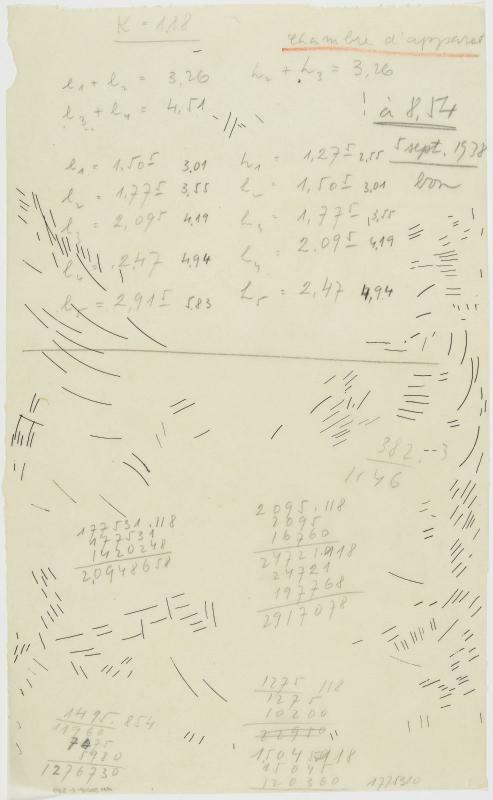 K = 1,18
chambre d'apparat
l1 + l2 = 3,26
h2 + h3 = 3,26
l3 + l4 = 4,51
à 8,54
5 sept. 1938
bon
l1 = 1,505 3,01
h1 = 1,275 2,55
l2 = 1,775 3,55
h2 = 1,505 3,01
l3 = 2,095 4,19
h3 = 1,775 3,55
l4 = 2,47 4,94
h4 = 2.095 4,19
l5 = 2,915 5,83
h5 = 2,47 4,94
382.--3
1146
177531.118
177531
1420248
20948658
2095.118
2095
16760
247210.118
24721
197768
2917078
1495.854
11960
7475
5980
1276730
1275 118
1275
10200
15045.118
15045
120360
1775310